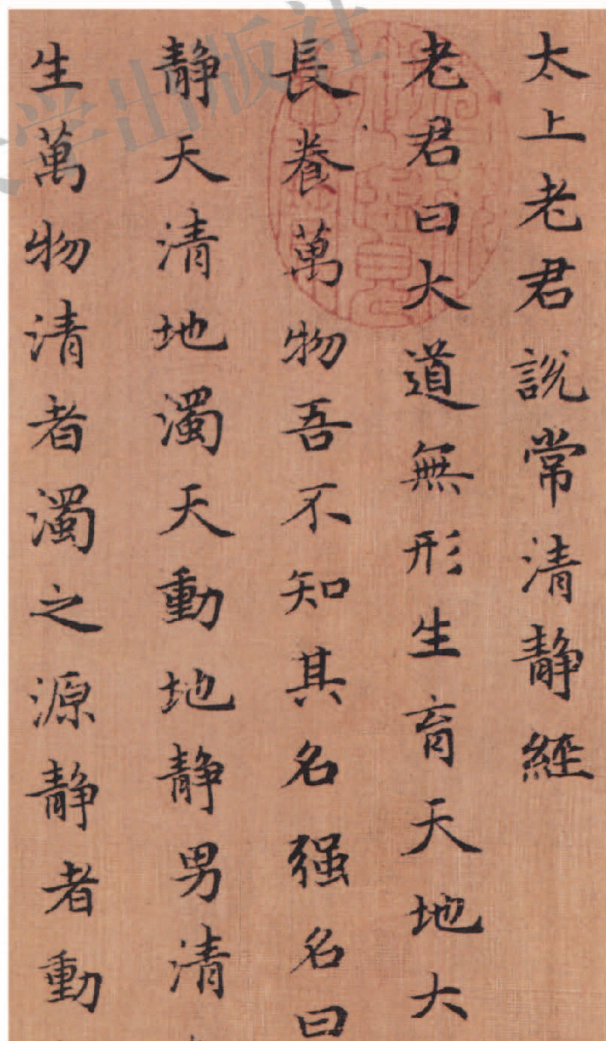 太上老君說常清靜經
老君曰大道無形生育天地大
長養萬物吾不知其名强名曰
靜天清地濁天動地靜男清
生萬物清者濁之源靜者動
学出版社